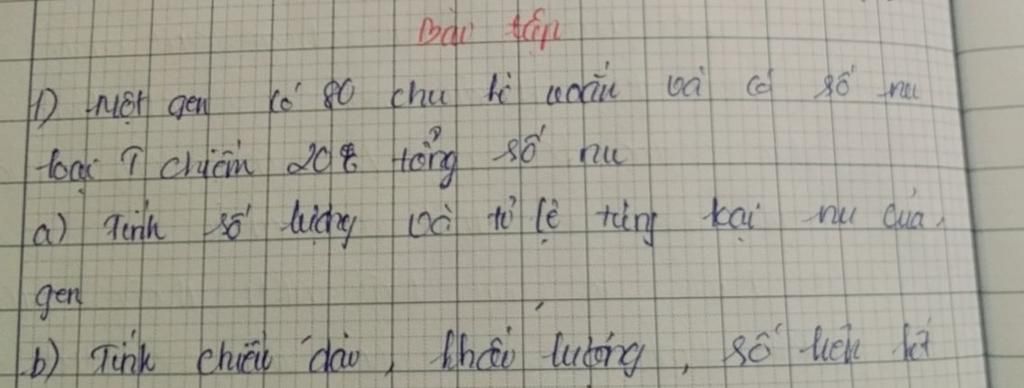 Bài tập
1) Một gen có 80 chu kì xoắn và có số nu
loại T chiếm 20% tổng số nu
a) Tính số lượng và tỉ lệ từng loại nu của
gen
b) Tính chiều dài, khối lượng, số liên kết